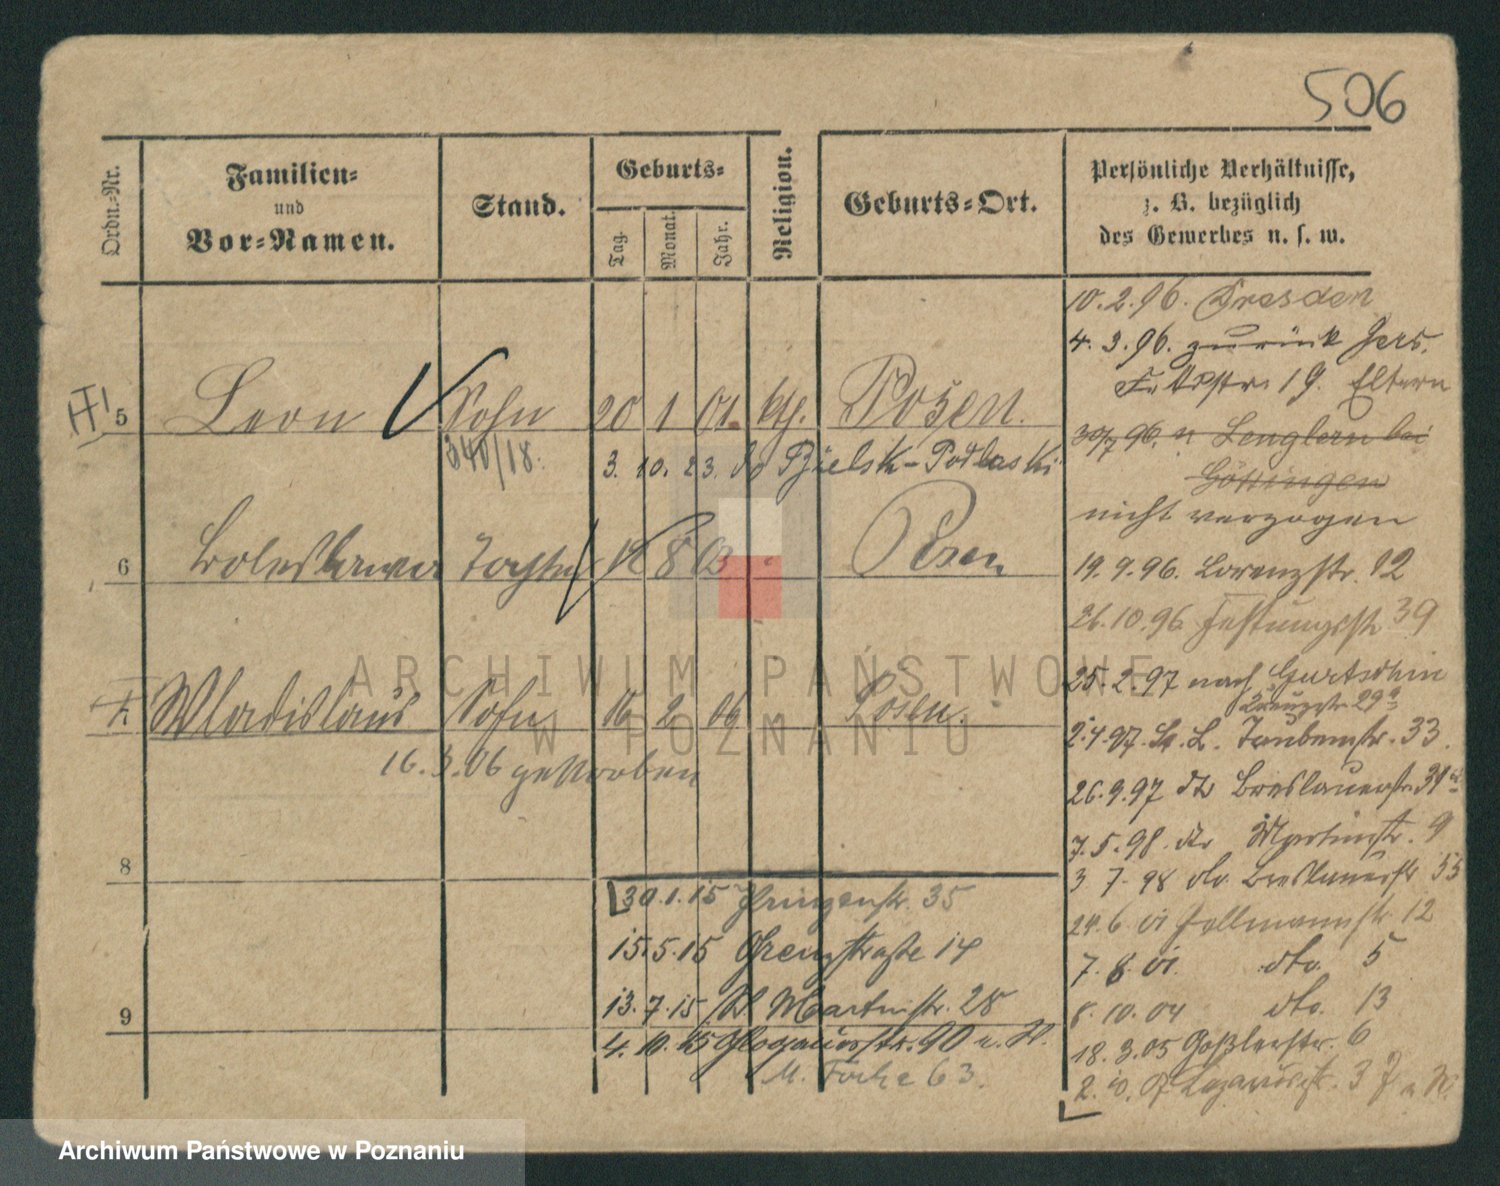 506
Ordn.-Nr.
Familien-
und
Vor-Namen.
Stand.
Geburts-
Tag.
Monat.
Jahr.
Religion.
Geburts-Ort.
Persönliche Verhältnisse,
z. B. bezüglich
des Gewerbes u. s. w.
5 Leon Sohn 20 1 01. kth. Posen.
340/18.
3. 10. 23. Bielsk-Podlaski
6 Boleslawa Tochter 8 03 Posen
Wladislaus Sohn 16 2 06 Posen.
16. 3. 06 gestorben
8
9
30.1.15 Prinzenstr. 35
15.5.15 Grenzstraße 14
13.7.15 St Martinstr. 28
4. 10. 15 Glogauerstr. 90 u. W.
M. Focha 63.
10. 2. 96. Dresden
4. 3. 96. zurück
19. Eltern
30/7 96. n Lenglern bei
Göttingen
nicht verzogen
19. 9. 96. Lorenzstr. 12
26. 10. 96 Festungsstr 39
25. 2. 97 nach Gurtschin
Kreuzstr. 29a
2. 4. 97. St. L. Taubenstr. 33.
26. 9. 97 Breslauerstr. 31
7. 5. 98. dto Martinstr. 9
3 7. 98 dto. Breslauerstr 35
24. 6 01 Hollmannstr 12
7. 8. 01. dto. 5
8. 10. 04 dto. 13
18. 3. 05 Goßlerstr. 6
Lazarusstr. 3
ARCHIWUM PAŃSTWOWE
W POZNANIU
Archiwum Państwowe w Poznaniu